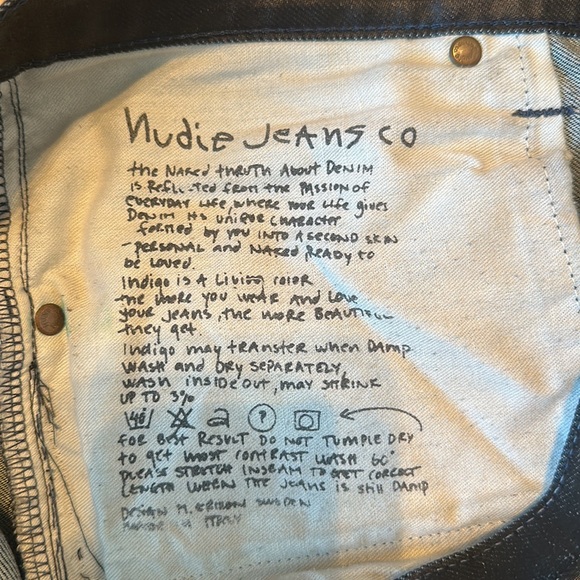 Nudie Jeans co
the Naked thruth About Denim
is Reflected from the Passion of
everyday Life, where your Life gives
Denim its unique character
formed by you into a second skin
- personal and Naked, Ready to
be loved.
Indigo is A Living color
the more you wear and Love
your jeans, the more Beautiful
they get.
Indigo may transfer when Damp
Wash and Dry separately,
wash inside out, may shrink
up to 3%
40
for best Result do not tumple dry
to get most contrast wash 60°
pleas stretch inseam to get correct
Length when the jeans is still Damp
Design M. Erixon Sweden
Italy